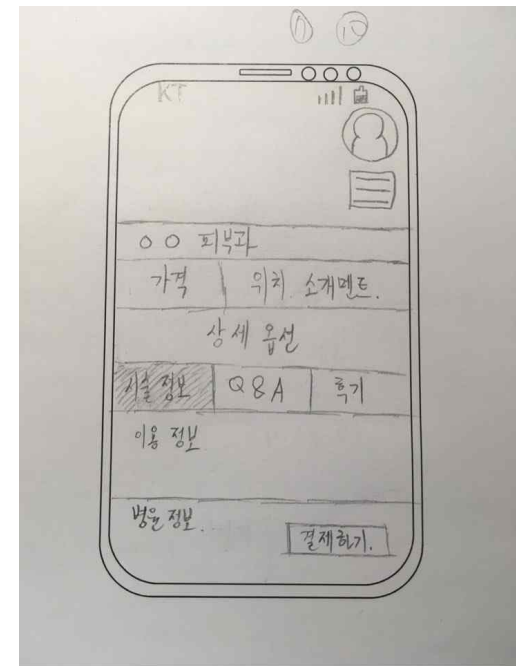 KT
○○ 피부과
가격 위치 소개멘트.
상세 옵션
시술 정보 Q&A 후기
이용 정보
병원 정보.
결제하기.